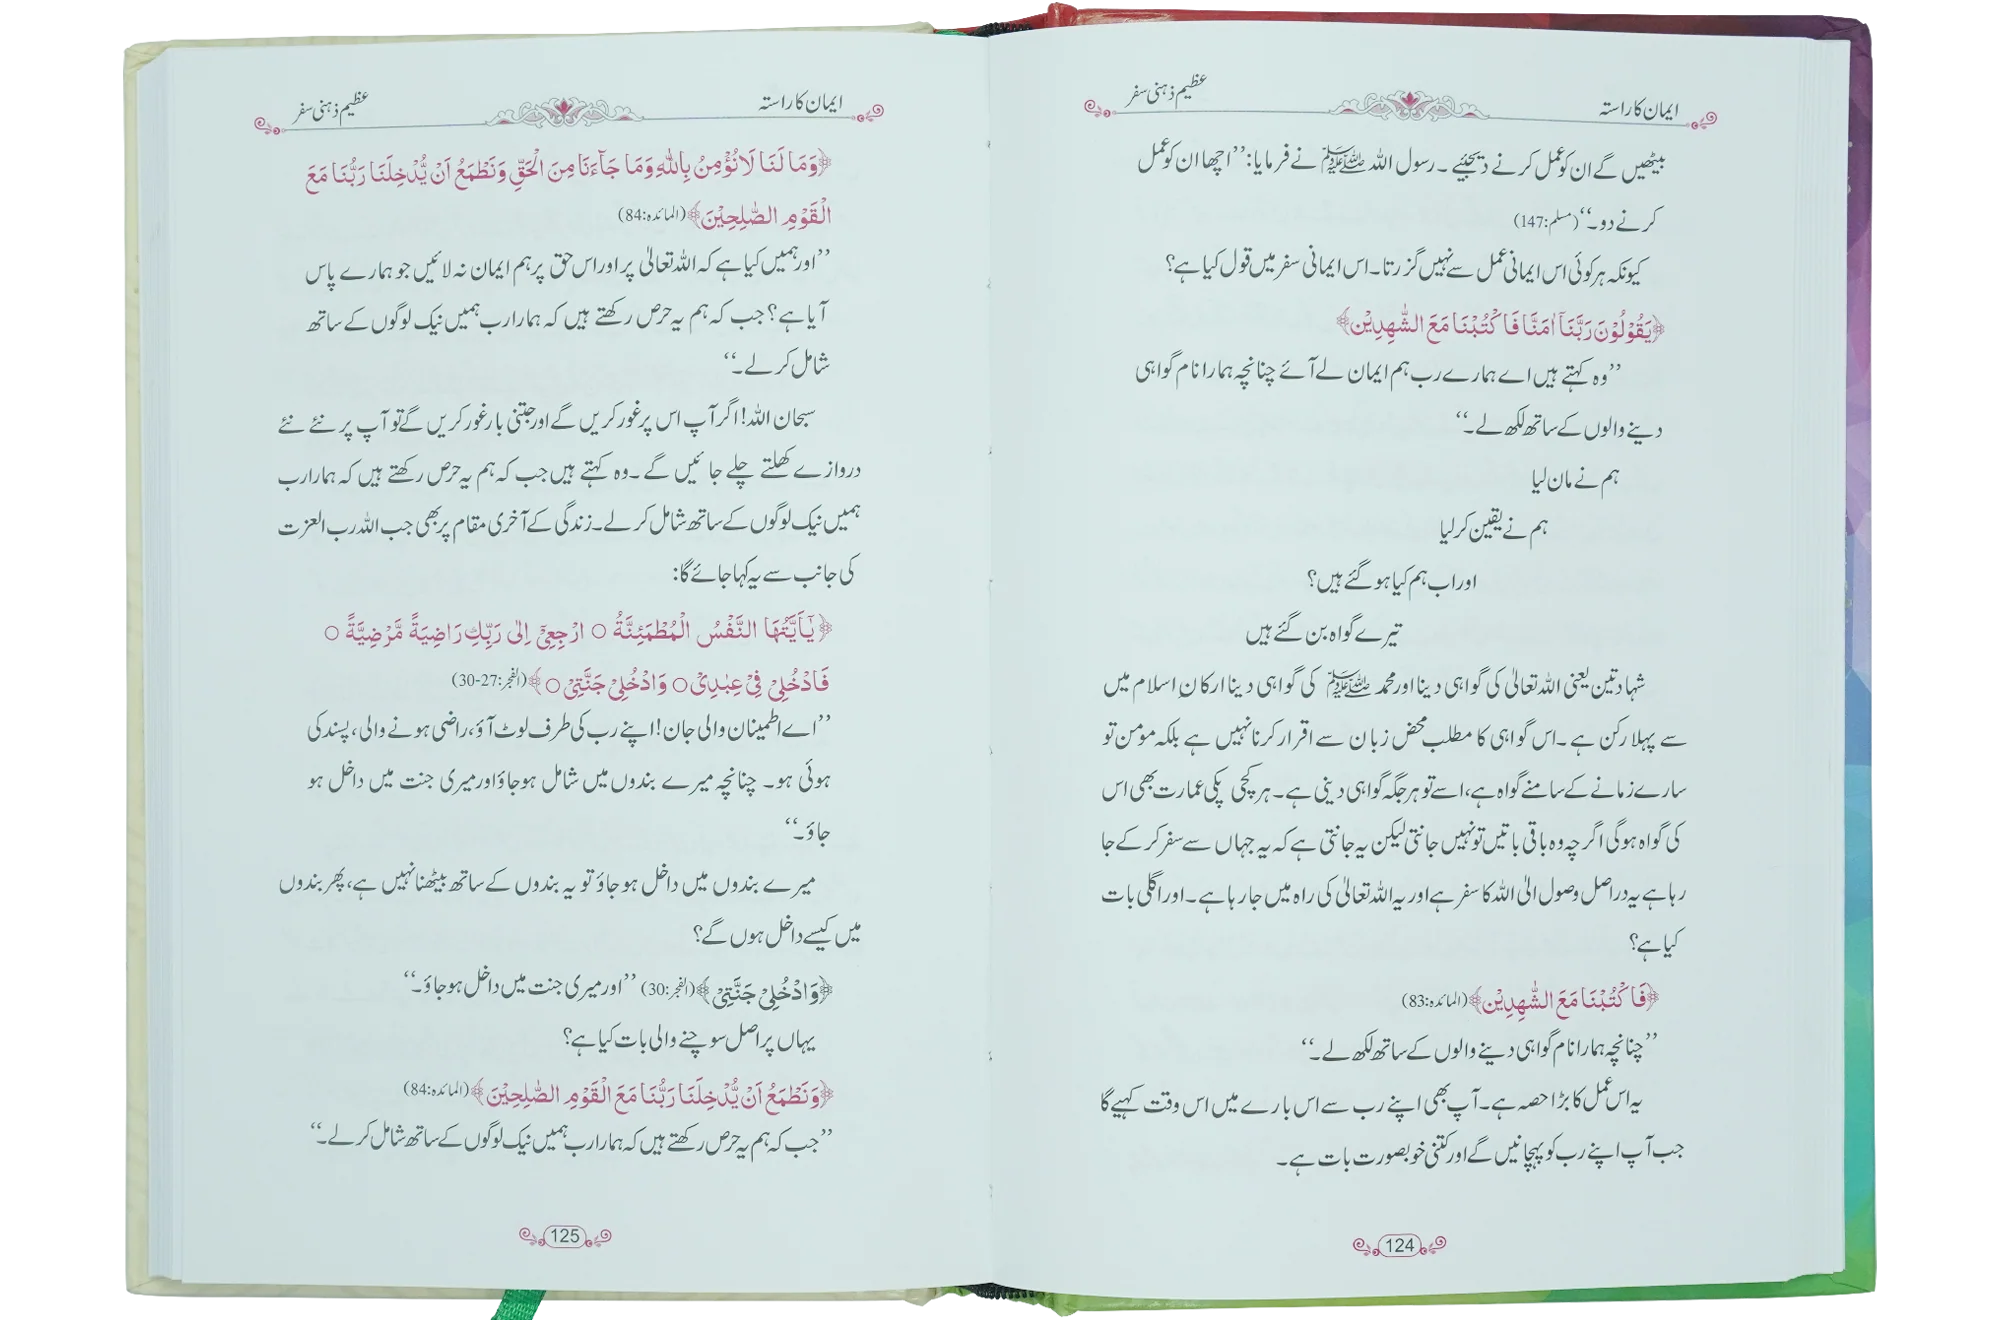 ایمان کا راستہ
عظیم ذہنی سفر
بیٹھیں گے ان کو عمل کرنے دیجئیے۔ رسول اللہ ﷺ نے فرمایا: ’’اچھا ان کو عمل
کرنے دو۔‘‘ (مسلم:147)
کیونکہ ہر کوئی اس ایمانی عمل سے نہیں گزرتا۔ اس ایمانی سفر میں قول کیا ہے؟
﴿يَقُوْلُوْنَ رَبَّنَاۤ اٰمَنَّا فَاكْتُبْنَا مَعَ الشّٰهِدِيْن﴾
’’وہ کہتے ہیں اے ہمارے رب ہم ایمان لے آئے چنانچہ ہمارا نام گواہی
دینے والوں کے ساتھ لکھ لے۔‘‘
ہم نے مان لیا
ہم نے یقین کر لیا
اور اب ہم کیا ہو گئے ہیں؟
تیرے گواہ بن گئے ہیں
شہادتین یعنی اللہ تعالیٰ کی گواہی دینا اور محمد ﷺ کی گواہی دینا ارکانِ اسلام میں
سے پہلا رکن ہے۔ اس گواہی کا مطلب محض زبان سے اقرار کرنا نہیں ہے بلکہ مومن تو
سارے زمانے کے سامنے گواہ ہے، اسے تو ہر جگہ گواہی دینی ہے۔ ہر کچی پکی عمارت بھی اس
کی گواہ ہو گی اگرچہ وہ باقی باتیں تو نہیں جانتی لیکن یہ جانتی ہے کہ یہ جہاں سے سفر کر کے جا
رہا ہے یہ دراصل وصول الی اللہ کا سفر ہے اور یہ اللہ تعالیٰ کی راہ میں جا رہا ہے۔ اور اگلی بات
کیا ہے؟
﴿فَاكْتُبْنَا مَعَ الشّٰهِدِيْن﴾ (المائدہ:83)
’’چنانچہ ہمارا نام گواہی دینے والوں کے ساتھ لکھ لے۔‘‘
یہ اس عمل کا بڑا حصہ ہے۔ آپ بھی اپنے رب سے اس بارے میں اس وقت کہیے گا
جب آپ اپنے رب کو پہچانیں گے اور کتنی خوبصورت بات ہے۔
124
ایمان کا راستہ
عظیم ذہنی سفر
﴿وَمَا لَنَا لَا نُؤْمِنُ بِاللّٰهِ وَمَا جَآءَنَا مِنَ الْحَقِّ وَنَطْمَعُ اَنْ يُّدْخِلَنَا رَبُّنَا مَعَ
الْقَوْمِ الصّٰلِحِيْنَ﴾ (المائدہ:84)
’’اور ہمیں کیا ہے کہ اللہ تعالیٰ پر اور اس حق پر ہم ایمان نہ لائیں جو ہمارے پاس
آیا ہے؟ جب کہ ہم یہ حرص رکھتے ہیں کہ ہمارا رب ہمیں نیک لوگوں کے ساتھ
شامل کر لے۔‘‘
سبحان اللہ! اگر آپ اس پر غور کریں گے اور جتنی بار غور کریں گے تو آپ پر نئے نئے
دروازے کھلتے چلے جائیں گے۔ وہ کہتے ہیں جب کہ ہم یہ حرص رکھتے ہیں کہ ہمارا رب
ہمیں نیک لوگوں کے ساتھ شامل کر لے۔ زندگی کے آخری مقام پر بھی جب اللہ رب العزت
کی جانب سے یہ کہا جائے گا:
﴿يٰۤاَيَّتُهَا النَّفْسُ الْمُطْمَئِنَّةُ ○ ارْجِعِيْۤ اِلٰى رَبِّكِ رَاضِيَةً مَّرْضِيَّةً ○
فَادْخُلِيْ فِيْ عِبٰدِيْ ○ وَادْخُلِيْ جَنَّتِيْ ○﴾ (الفجر:27-30)
’’اے اطمینان والی جان! اپنے رب کی طرف لوٹ آؤ، راضی ہونے والی، پسند کی
ہوئی ہو۔ چنانچہ میرے بندوں میں شامل ہو جاؤ اور میری جنت میں داخل ہو
جاؤ۔‘‘
میرے بندوں میں داخل ہو جاؤ تو یہ بندوں کے ساتھ بیٹھنا نہیں ہے، پھر بندوں
میں کیسے داخل ہوں گے؟
﴿وَادْخُلِيْ جَنَّتِيْ﴾ (الفجر:30) ’’اور میری جنت میں داخل ہو جاؤ۔‘‘
یہاں پر اصل سوچنے والی بات کیا ہے؟
﴿وَنَطْمَعُ اَنْ يُّدْخِلَنَا رَبُّنَا مَعَ الْقَوْمِ الصّٰلِحِيْنَ﴾ (المائدہ:84)
’’جب کہ ہم یہ حرص رکھتے ہیں کہ ہمارا رب ہمیں نیک لوگوں کے ساتھ شامل کر لے۔‘‘
125